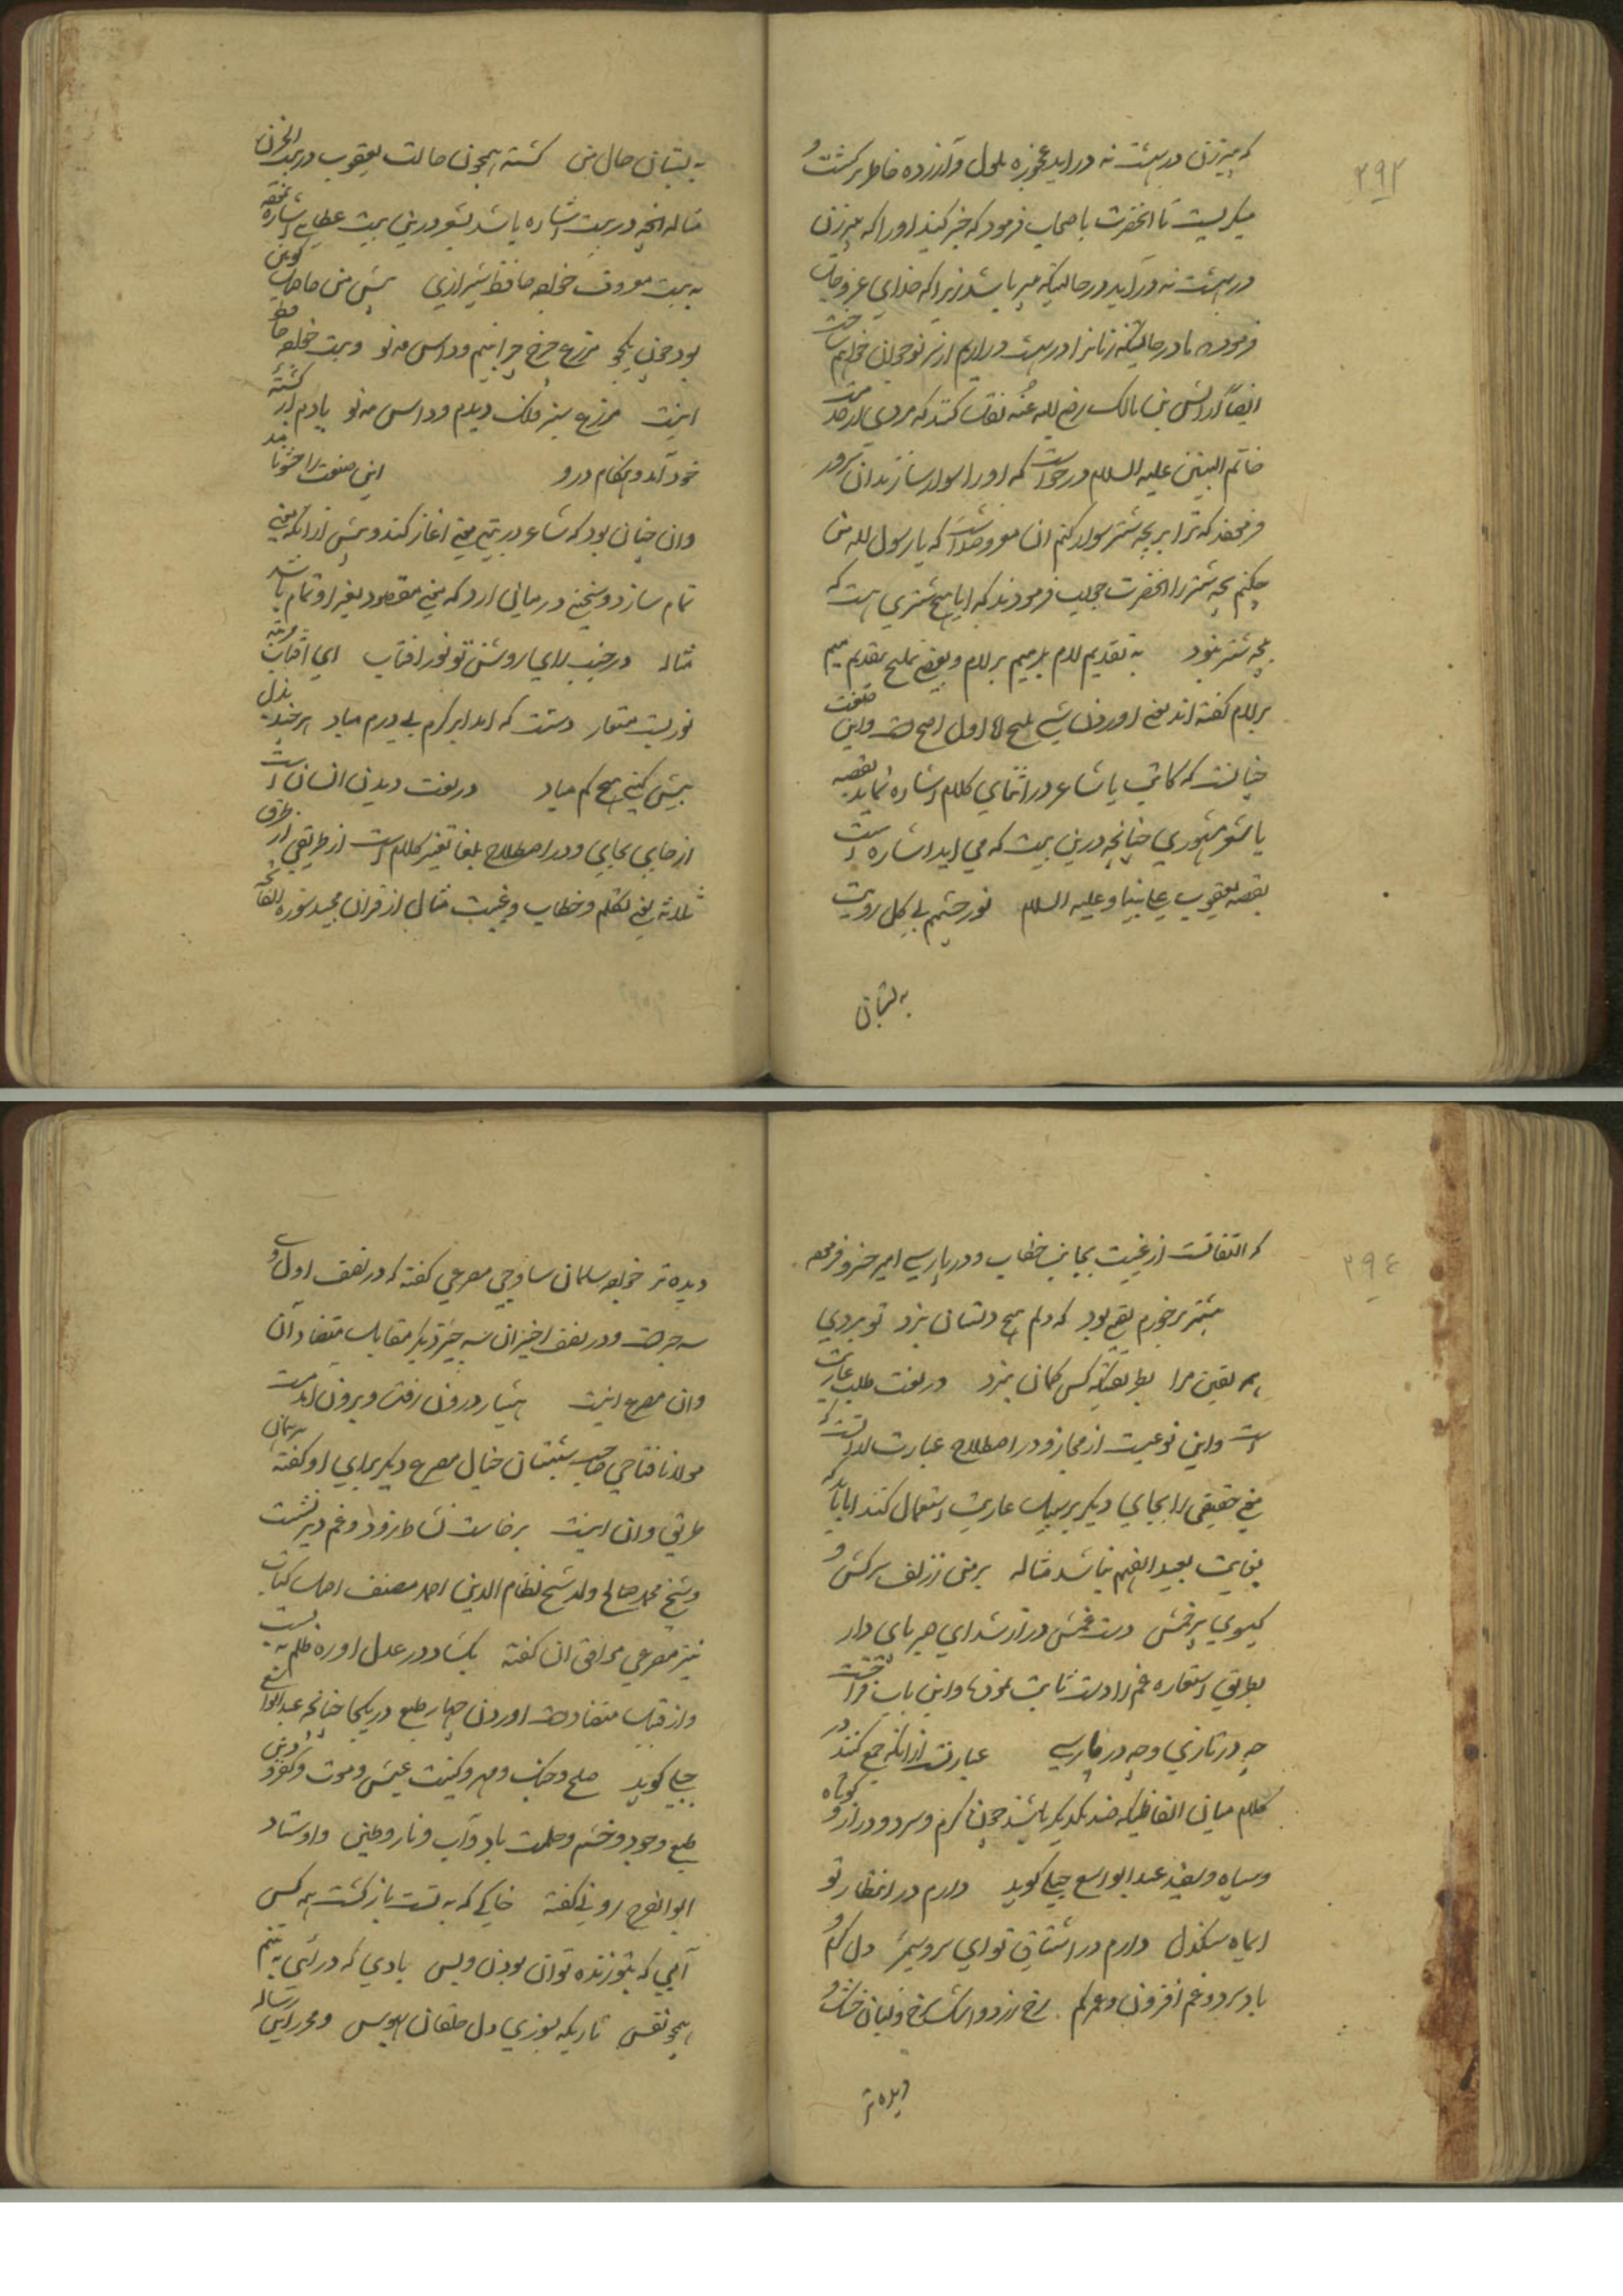 ۲۹۳
که پیرزن در بهشت نه دراید عجوزه ملول و آزرده خاطر برگشت و
میگریست تا انحضرت باصحاب فرمود که خبر کنید او را که پیرزن
در بهشت نه درآید در حالیکه پیر باشد زیرا که خدای عز وجل
فرموده ما در حالیکه زنانرا در بهشت در اریم از سر نو جوان خواهم
ایضاً از انس بن مالک رضی الله عنه نقل کنند که مردی از
خاتم النبیین علیه السلام درخواست که او را سوار سازند ان سرور
فرمود که ترا بر بچه شتر سوار کنم ان معروضداشت که یا رسول الله من
چکنم بچه شتر را انحضرت جواب فرمودند که ایا هیچ شتری هست که
بچه شتر نبود به تقدیم لام بر میم و بعضی تملیح بتقدیم میم
بر لام گفته اند یعنی اوردن شی ملیح اما اول اصح است و این صنعت
چنانست که کاتب یا شاعر در اثنای کلام اشاره نماید بقصه
یا شعر مشهوری چنانچه درین بیت که می اید اشاره است
بقصه یعقوب علی نبینا و علیه السلام نور چشمم بی گل رویت
به بستان
به بستان حال من گشته همچون حالت یعقوب در بیت الحزن
مثاله انچه در بیت اشاره باشد بشعر درین بیت عطایی اشاره نموده
به بیت معروف خواجه حافظ شیرازی پیش من حاصل کونین
بود چون یکجو مزرع چرخ چرا بینم و داس مه نو و بیت خواجه حافظ
اینست مزرع سبز فلک دیدم و داس مه نو یادم از کشته
خود آمد و هنگام درو این صنعت را حشو نامند
وان چنان بود که شاعر در بیتی معنی اغاز کند و پیش ازانکه معنی
تمام سازد و سخنی در میان ارد که معنی مقصود بغیر او تمام باشد
مثاله در جنب رای روشن تو نور افتاب ای آفتاب مرتبه
نوریست مستعار دستت که اید ابر کرم بی درم مباد هرچند بذل
بیش کنی هیچ کم مباد در لغت دیدن انسان است
از جایی بجایی و در اصطلاح بلغا تغییر کلام است از طریقی از طرق
ثلاثه یعنی تکلم و خطاب و غیبت مثال از قران مجید سوره الفاتحه
۲۹٤
که التفاتست از غیبت بجانب خطاب و در پارسی امیر خسرو فرموده
بیشتر برخورم توقع بود که دلم هیچ دلستان نبرد تو ببردی
همه یقین مرا بطریقیکه کس گمان نبرد در لغت طلب عاریت
است و این نوعیست از مجاز و در اصطلاح عبارت از انست که
معنی حقیقی را بجای دیگر بر سبیل عاریت استعمال کنند اما باید که
بغایت بعید الفهم نباشد مثاله بر من از زلف سرکش و
گیسوی پر خمش دست غمش دراز شد ای هر بای دار
بطریق استعاره غم را دست ثابت نموده و این باب فراخست
چه در تازی و چه در پارسی عبارتست از انکه جمع کنند در
کلام میان الفاظیکه ضد یکدیگر باشند چون گرم و سرد و دراز و کوتاه
و سیاه و سفید عبد الواسع جبلی گوید دارم در انتظار تو
ایماه سنگدل دارم در اشتیاق تو ای سرو سیمبر دل گرم و
باد سرد و غم افزون و عمر کم رخ زرد و اشک سرخ و لبان خشک و
دیده تر
دیده تر خواجه سلمان ساوجی مصرعی گفته که در نصف اول او
سه چیز است و در نصف اخیر ان سه چیز دیگر مقابل متضاد آن
وان مصرع اینست هشیار درون رفت و برون آمد مست
مولانا فتاحی صاحب شبستان خیال مصرع دیگر برابر او گفته
طرقی وان اینست برخاست نشاط زود و غم دیر نشست
و شیخ محمد صالح ولد شیخ نظام الدین احمد مصنف اصل کتاب
نیز مصرعی موافق ان گفته بگشاد در عدل او ره ظلم به بست
و از قبیل متضاد است اوردن چهار طبع در یکجا چنانچه عبدالواسع
جبلی گوید صلح و جنگ و مهر و کینت عیش و موت و کفر و دین
طبع و جود و خشم و حلمت باد و آب و نار و طین و اوستاد
ابو الفرج رونی گفته خاکی که به تست بازگشت همه کس
آبی که بتو زنده توان بودن و بس بادی که درائی به تنم
همچو نفس ناریکه بسوزی دل خلقان بهوس و محرر این رساله